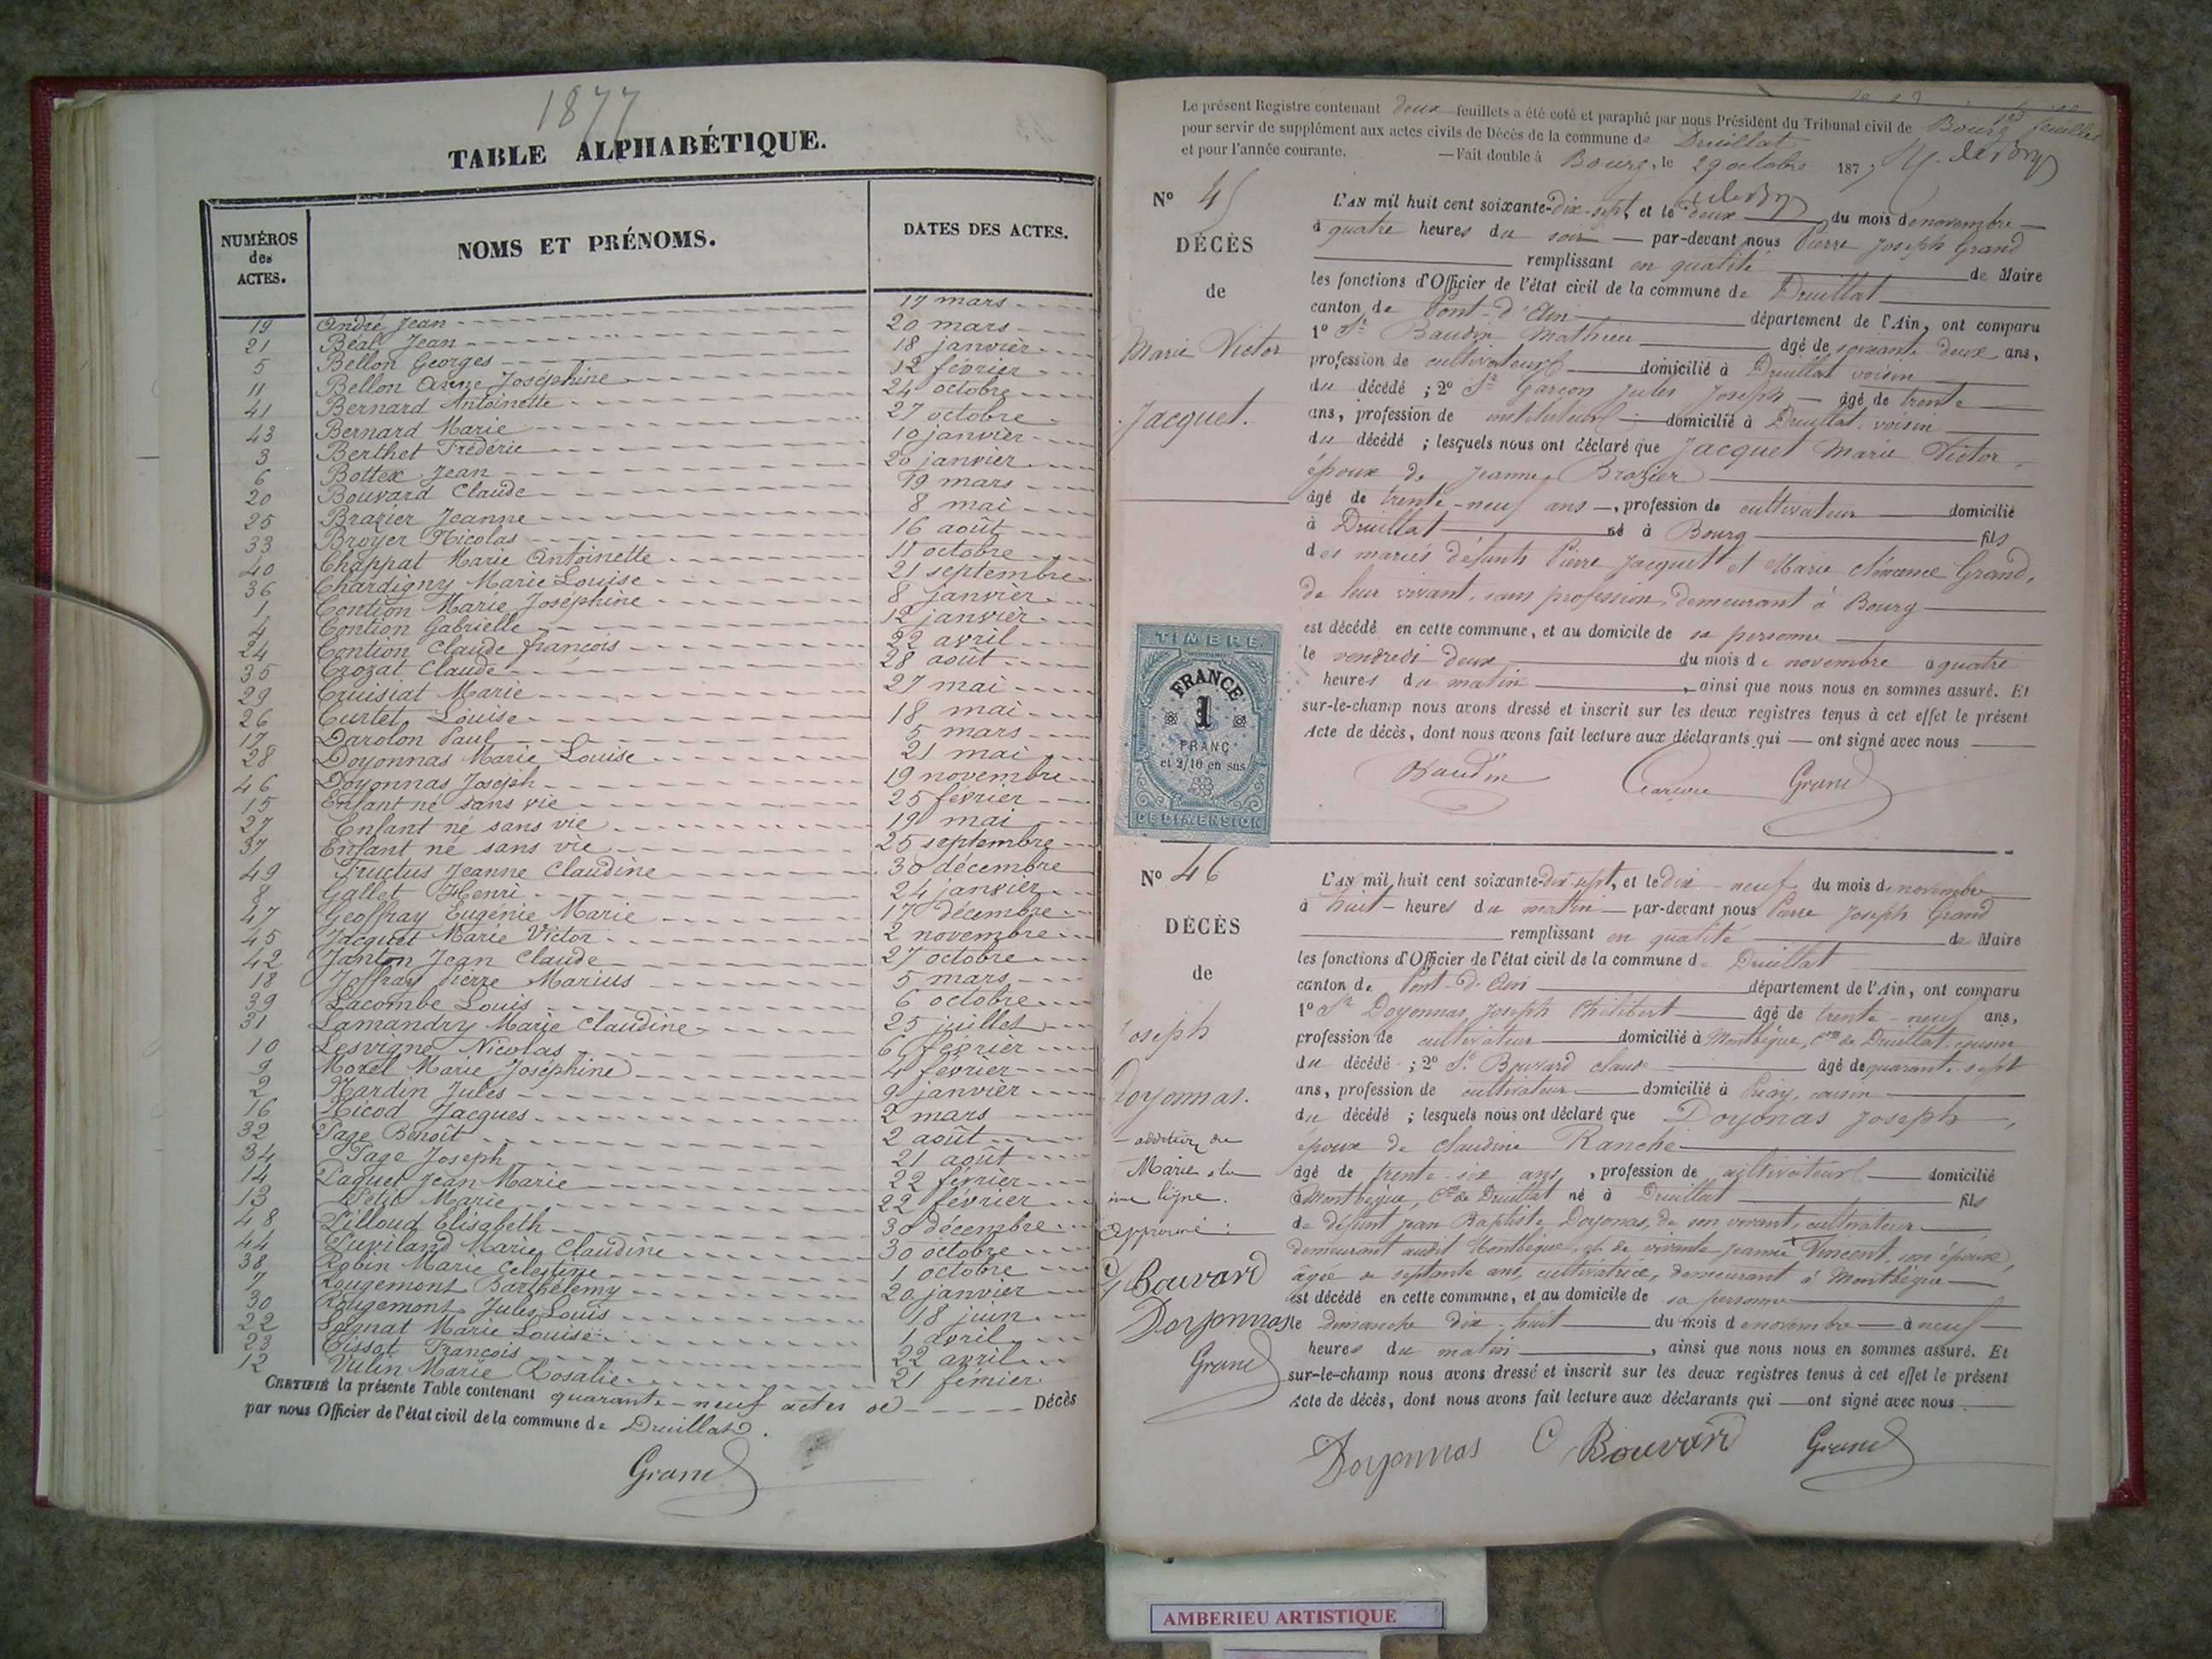 1877
TABLE ALPHABÉTIQUE.
NUMÉROS des ACTES. NOMS ET PRÉNOMS. DATES DES ACTES.
19 André Jean 17 mars
21 Béal Jean 20 mars
5 Bellon Georges 18 janvier
11 Bellon Anne Joséphine 12 février
41 Bernard Antoinette 24 octobre
43 Bernard Marie 27 octobre
3 Berthet Frédéric 10 janvier
6 Bottex Jean 20 janvier
20 Bouvard Claude 19 mars
25 Brazier Jeanne 8 mai
33 Broyer Nicolas 16 août
40 Chappat Marie Antoinette 11 octobre
36 Chardigny Marie Louise 21 septembre
1 Contion Marie Joséphine 8 janvier
4 Contion Gabrielle 12 janvier
24 Contion Claude françois 22 avril
35 Crozat Claude 28 août
29 Cruisiat Marie 27 mai
26 Curtet Louise 18 mai
17 Darolon Paul 5 mars
28 Doyonnas Marie Louise 21 mai
46 Doyonnas Joseph 19 novembre
15 Enfant né sans vie 25 février
27 Enfant né sans vie 19 mai
37 Enfant né sans vie 25 septembre
49 Fructus Jeanne Claudine 30 décembre
8 Gallet Henri 24 janvier
47 Geoffray Eugénie Marie 17 décembre
45 Jacquet Marie Victor 2 novembre
42 Janton Jean Claude 27 octobre
18 Joffray Pierre Marius 5 mars
39 Lacombe Louis 6 octobre
31 Lamandry Marie Claudine 25 juillet
10 Lesvigne Nicolas 6 février
9 Morel Marie Joséphine 4 février
2 Nardin Jules 9 janvier
16 Nicod Jacques 2 mars
32 Page Benoît 2 août
34 Page Joseph 21 août
14 Paquet Jean Marie 22 février
13 Petit Marie 22 février
48 Pilloud Elisabeth 30 décembre
44 Puviland Marie Claudine 30 octobre
38 Robin Marie Celestine 1 octobre
7 Rougemont Barthélemy 20 janvier
30 Rougemont Jules Louis 18 juin
22 Sognat Marie Louise 1 avril
23 Tissot François 22 avril
12 Vulin Marie Rosalie 21 février
CERTIFIÉ la présente Table contenant quarante-neuf actes de Décès
par nous Officier de l'état civil de la commune de Druillat.
Grand
Le présent Registre contenant deux feuillets a été coté et paraphé par nous Président du Tribunal civil de Bourg
pour servir de supplément aux actes civils de Décès de la commune de Druillat
et pour l'année courante. —Fait double à Bourg, le 29 octobre 1877
N° 45
DÉCÈS
de
Marie Victor
Jacquet.
L'AN mil huit cent soixante-dix-sept, et le deux du mois de novembre
à quatre heures du soir — par-devant nous Pierre Joseph Grand
remplissant en qualité de Maire
les fonctions d'Officier de l'état civil de la commune de Druillat
canton de Pont-d'Ain département de l'Ain, ont comparu
1° Sr Baudin Mathieu âgé de soixante deux ans,
profession de cultivateur domicilié à Druillat voisin
du décédé ; 2° Sr Garçon Jules Joseph — âgé de trente
ans, profession de instituteur domicilié à Druillat, voisin
du décédé ; lesquels nous ont déclaré que Jacquet Marie Victor,
époux de Jeanne Brazier
âgé de trente-neuf ans —, profession de cultivateur domicilié
à Druillat né à Bourg fils
des mariés défunts Pierre Jacquet et Marie Clémence Grand,
de leur vivant, sans profession, demeurant à Bourg
est décédé en cette commune, et au domicile de sa personne
le vendredi deux du mois de novembre à quatre
heures du matin, ainsi que nous nous en sommes assuré. Et
sur-le-champ nous avons dressé et inscrit sur les deux registres tenus à cet effet le présent
Acte de décès, dont nous avons fait lecture aux déclarants qui — ont signé avec nous
Baudin Garçon Grand
TIMBRE
FRANCE
1
FRANC
et 2/10 en sus
DE DIMENSION
N° 46
DÉCÈS
de
Joseph
Doyonnas.
L'AN mil huit cent soixante-dix-sept, et le dix-neuf du mois de novembre
à huit heures du matin — par-devant nous Pierre Joseph Grand
remplissant en qualité de Maire
les fonctions d'Officier de l'état civil de la commune de Druillat
canton de Pont-d'Ain département de l'Ain, ont comparu
1° Sr Doyonnas, Joseph Philibert âgé de trente-neuf ans,
profession de cultivateur domicilié à Montbègue, Cne de Druillat, cousin
du décédé ; 2° Sr Bouvard Claude âgé de quarante-sept
ans, profession de cultivateur domicilié à Priay, cousin
du décédé ; lesquels nous ont déclaré que Doyonas Joseph,
époux de Claudine Ranche
âgé de trente-six ans, profession de cultivateur domicilié
à Montbègue, Cne de Druillat né à Druillat fils
de défunt Jean Baptiste Doyonas, de son vivant, cultivateur
demeurant audit Montbègue, et de vivante Jeanne Vincent, son épouse,
âgée de septante ans, cultivatrice, demeurant à Montbègue
est décédé en cette commune, et au domicile de sa personne
le Dimanche dix-huit du mois de novembre — à neuf
heures du matin, ainsi que nous nous en sommes assuré. Et
sur-le-champ nous avons dressé et inscrit sur les deux registres tenus à cet effet le présent
Acte de décès, dont nous avons fait lecture aux déclarants qui — ont signé avec nous
addition de
Marie
ligne.
Approuvé :
C Bouvard
Doyonnas
Grand
Doyonnas C Bouvard Grand
AMBERIEU ARTISTIQUE